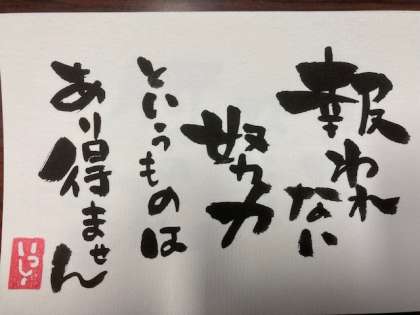 報われ
ない
努力
というものは
あり得ません
いっしょ